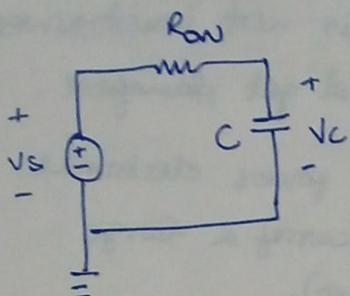 RON
+
+
Vs
+
-
C
Vc
-
-